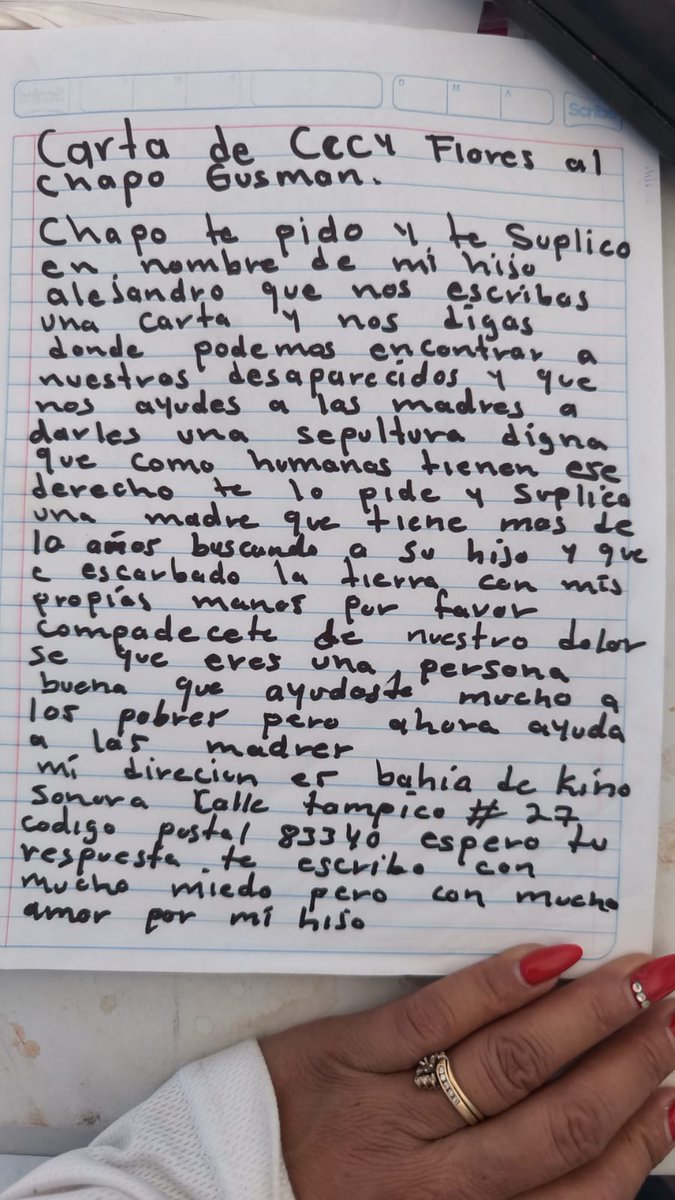 D M A
Scribe
Carta de Cecy Flores al
chapo Gusman.
Chapo te pido y te Suplico
en nombre de mi hijo
alejandro que nos escribas
una carta y nos digas
donde podemos encontrar a
nuestros desaparecidos y que
nos ayudes a las madres a
darles una sepultura digna
que como humanas tienen ese
derecho te lo pide y Suplico
una madre que tiene mas de
10 años buscando a su hijo y que
e escarbado la tierra con mis
propias manos por favor
compadecete de nuestro dolor
se que eres una persona
buena que ayudaste mucho a
los pobres pero ahora ayuda
a las madres
mi direcion es bahia de kino
Sonora Calle tampico # 27
codigo postal 83340 espero tu
respuesta te escribo con
mucho miedo pero con mucho
amor por mi hijo